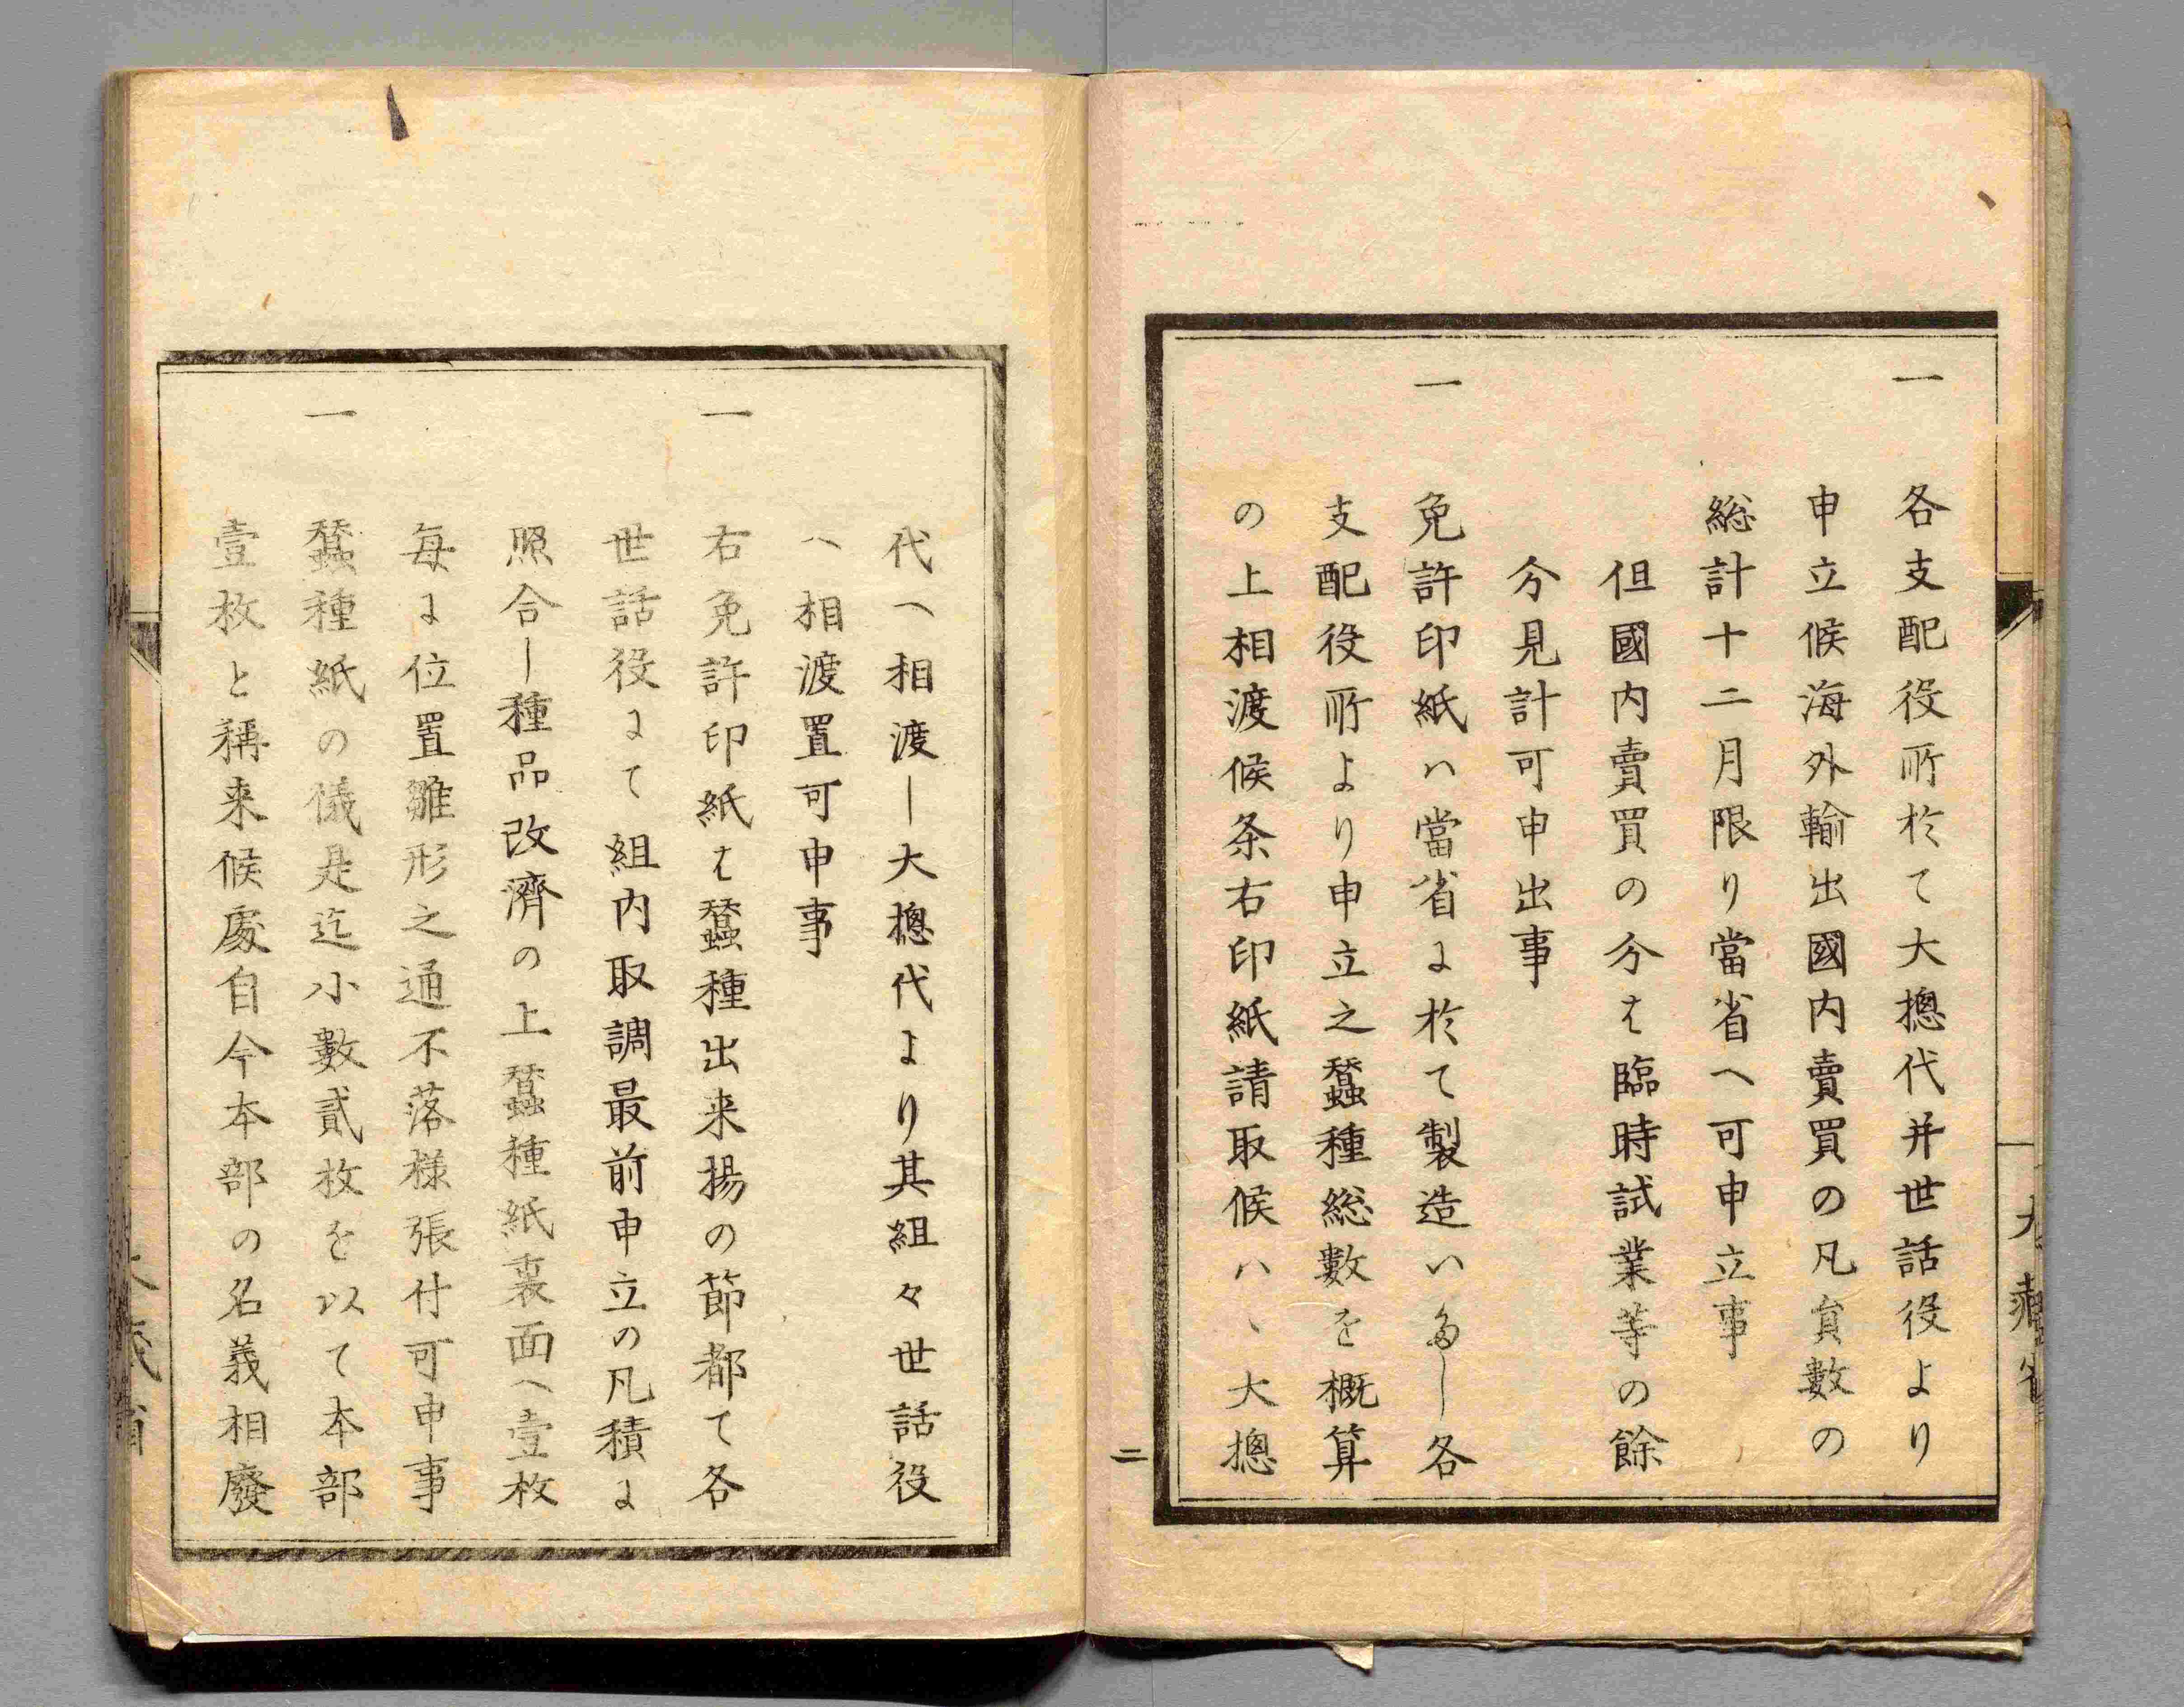 一 各支配役所於て大摠代并世話役より
申立候海外輸出國内賣買の凡員數の
総計十二月限り當省へ可申立事
但國内賣買の分は臨時試業等の餘
分見計可申出事
一 免許印紙ハ當省に於て製造いたし各
支配役所より申立之蠶種総數を概算
の上相渡候条右印紙請取候ハヽ大摠
二
大藏省
代へ相渡し大摠代より其組々世話役
へ相渡置可申事
一 右免許印紙は蠶種出来揚の節都て各
世話役にて組内取調最前申立の凡積に
照合し種品改濟の上蠶種紙裏面へ壹枚
毎に位置雛形之通不落様張付可申事
一 蠶種紙の儀是迄小數貳枚を以て本部
壹枚と稱来候處自今本部の名義相廢
大藏省